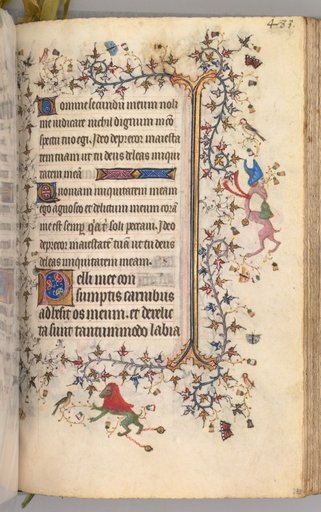 483
Domine secundum meum noli
me iudicare nichil dignum in co
spectu tuo egi. Ideo deprecor maiesta
tem tuam ut tu deus deleas iniqui
tatem meā
Quoniam iniquitatem meam
ego agnosco et delictum meum corā
me est semp̄ q̄a t̄ soli peccaui. Ideo
deprecor maiestatē tuā ut tu deus
deleas iniquitatem meam.
Pelli mee con
sumptis carnibus
adhesit os meum. et derelic
ta sunt tantummodo labia